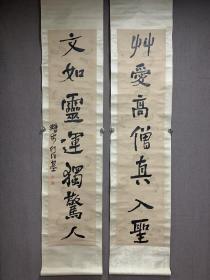 艸愛高僧真入聖
文如靈運獨驚人